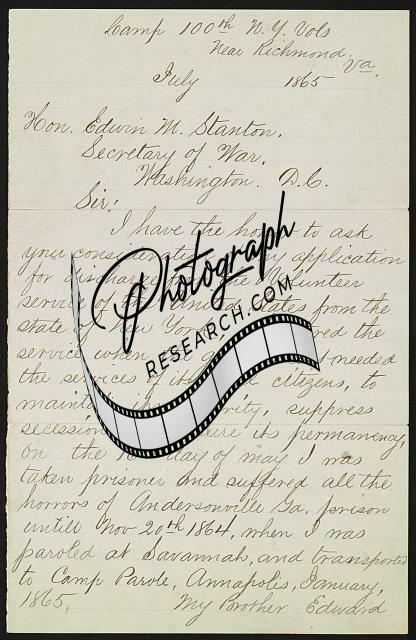 Camp 100th N.Y. Vols
Near Richmond,
Va.
July 1865
Hon. Edwin M. Stanton,
Secretary of War,
Washington. D.C.
Sir:
I have the to ask
your application
for Volunteer
service of States from the
state of New York. the
service when needed
the services of citizens, to
suppress
secession its permanency,
On the day of may I was
taken prisoner and suffered all the
horrors of Andersonville Ga. prison
untill Nov 20th 1864, when I was
paroled at Savannah, and transported
to Camp Parole, Annapolis, January,
1865, My Brother Edward
Photograph
RESEARCH.COM